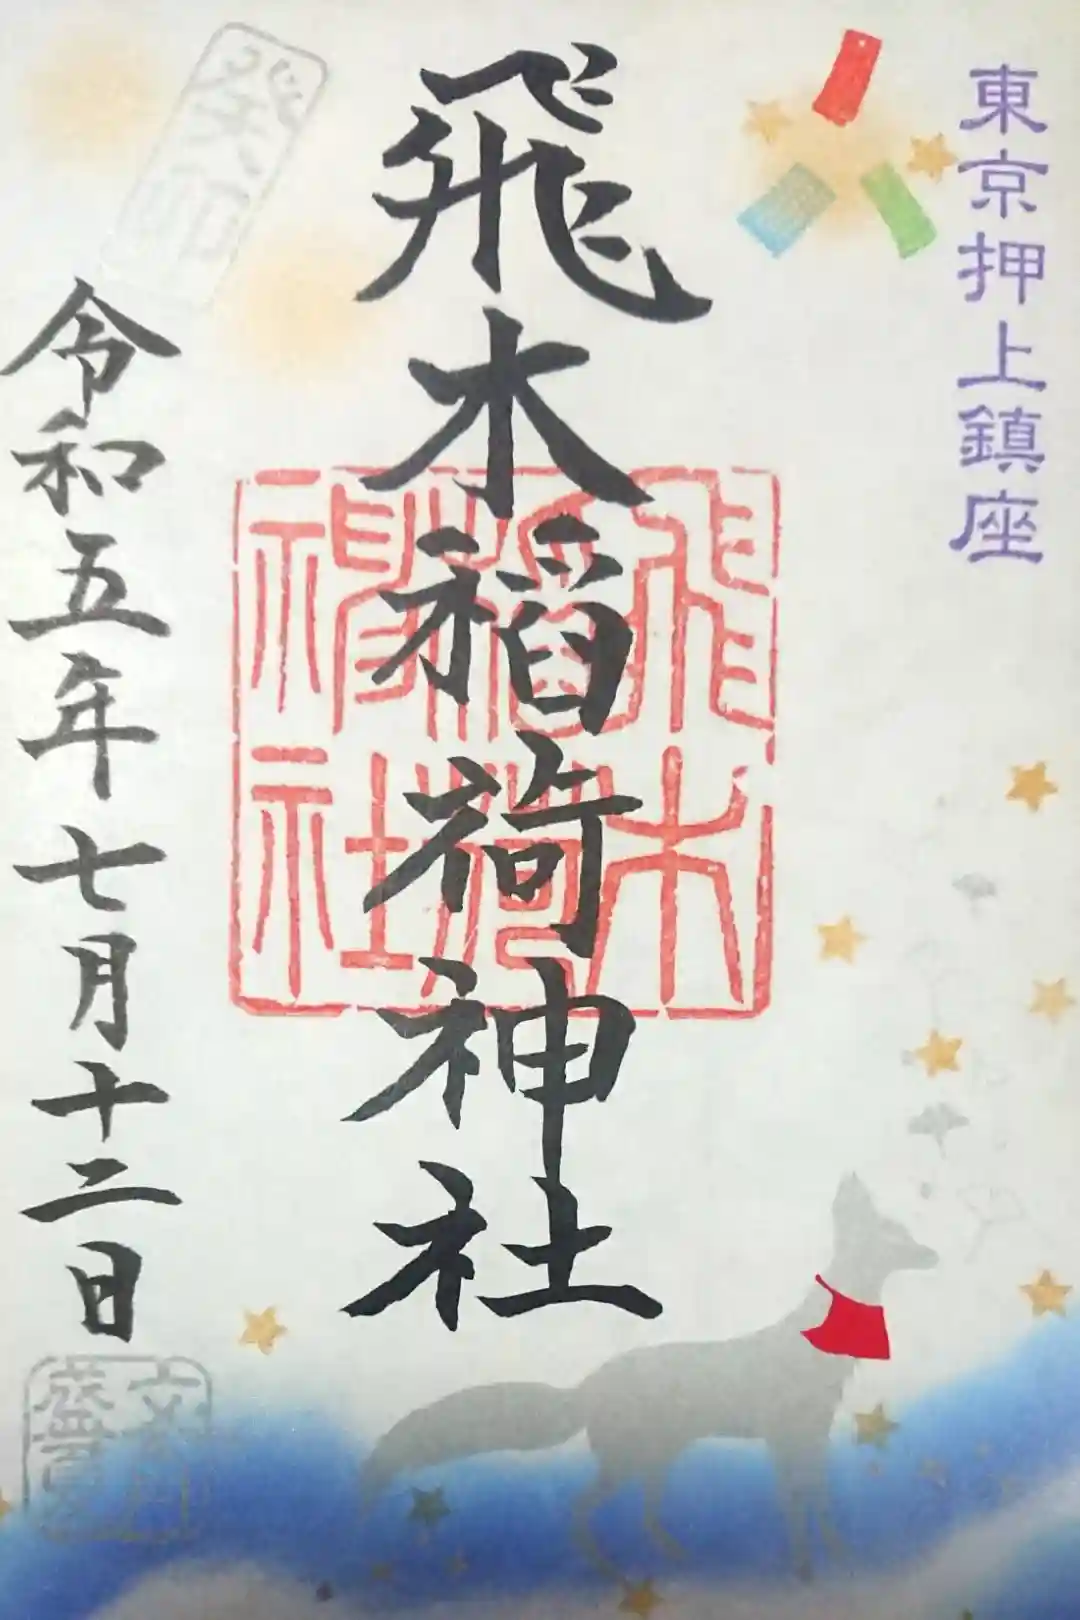 東京押上鎮座
飛木稲荷神社
飛木
稲荷
神社
癸卯
令和五年七月十二日